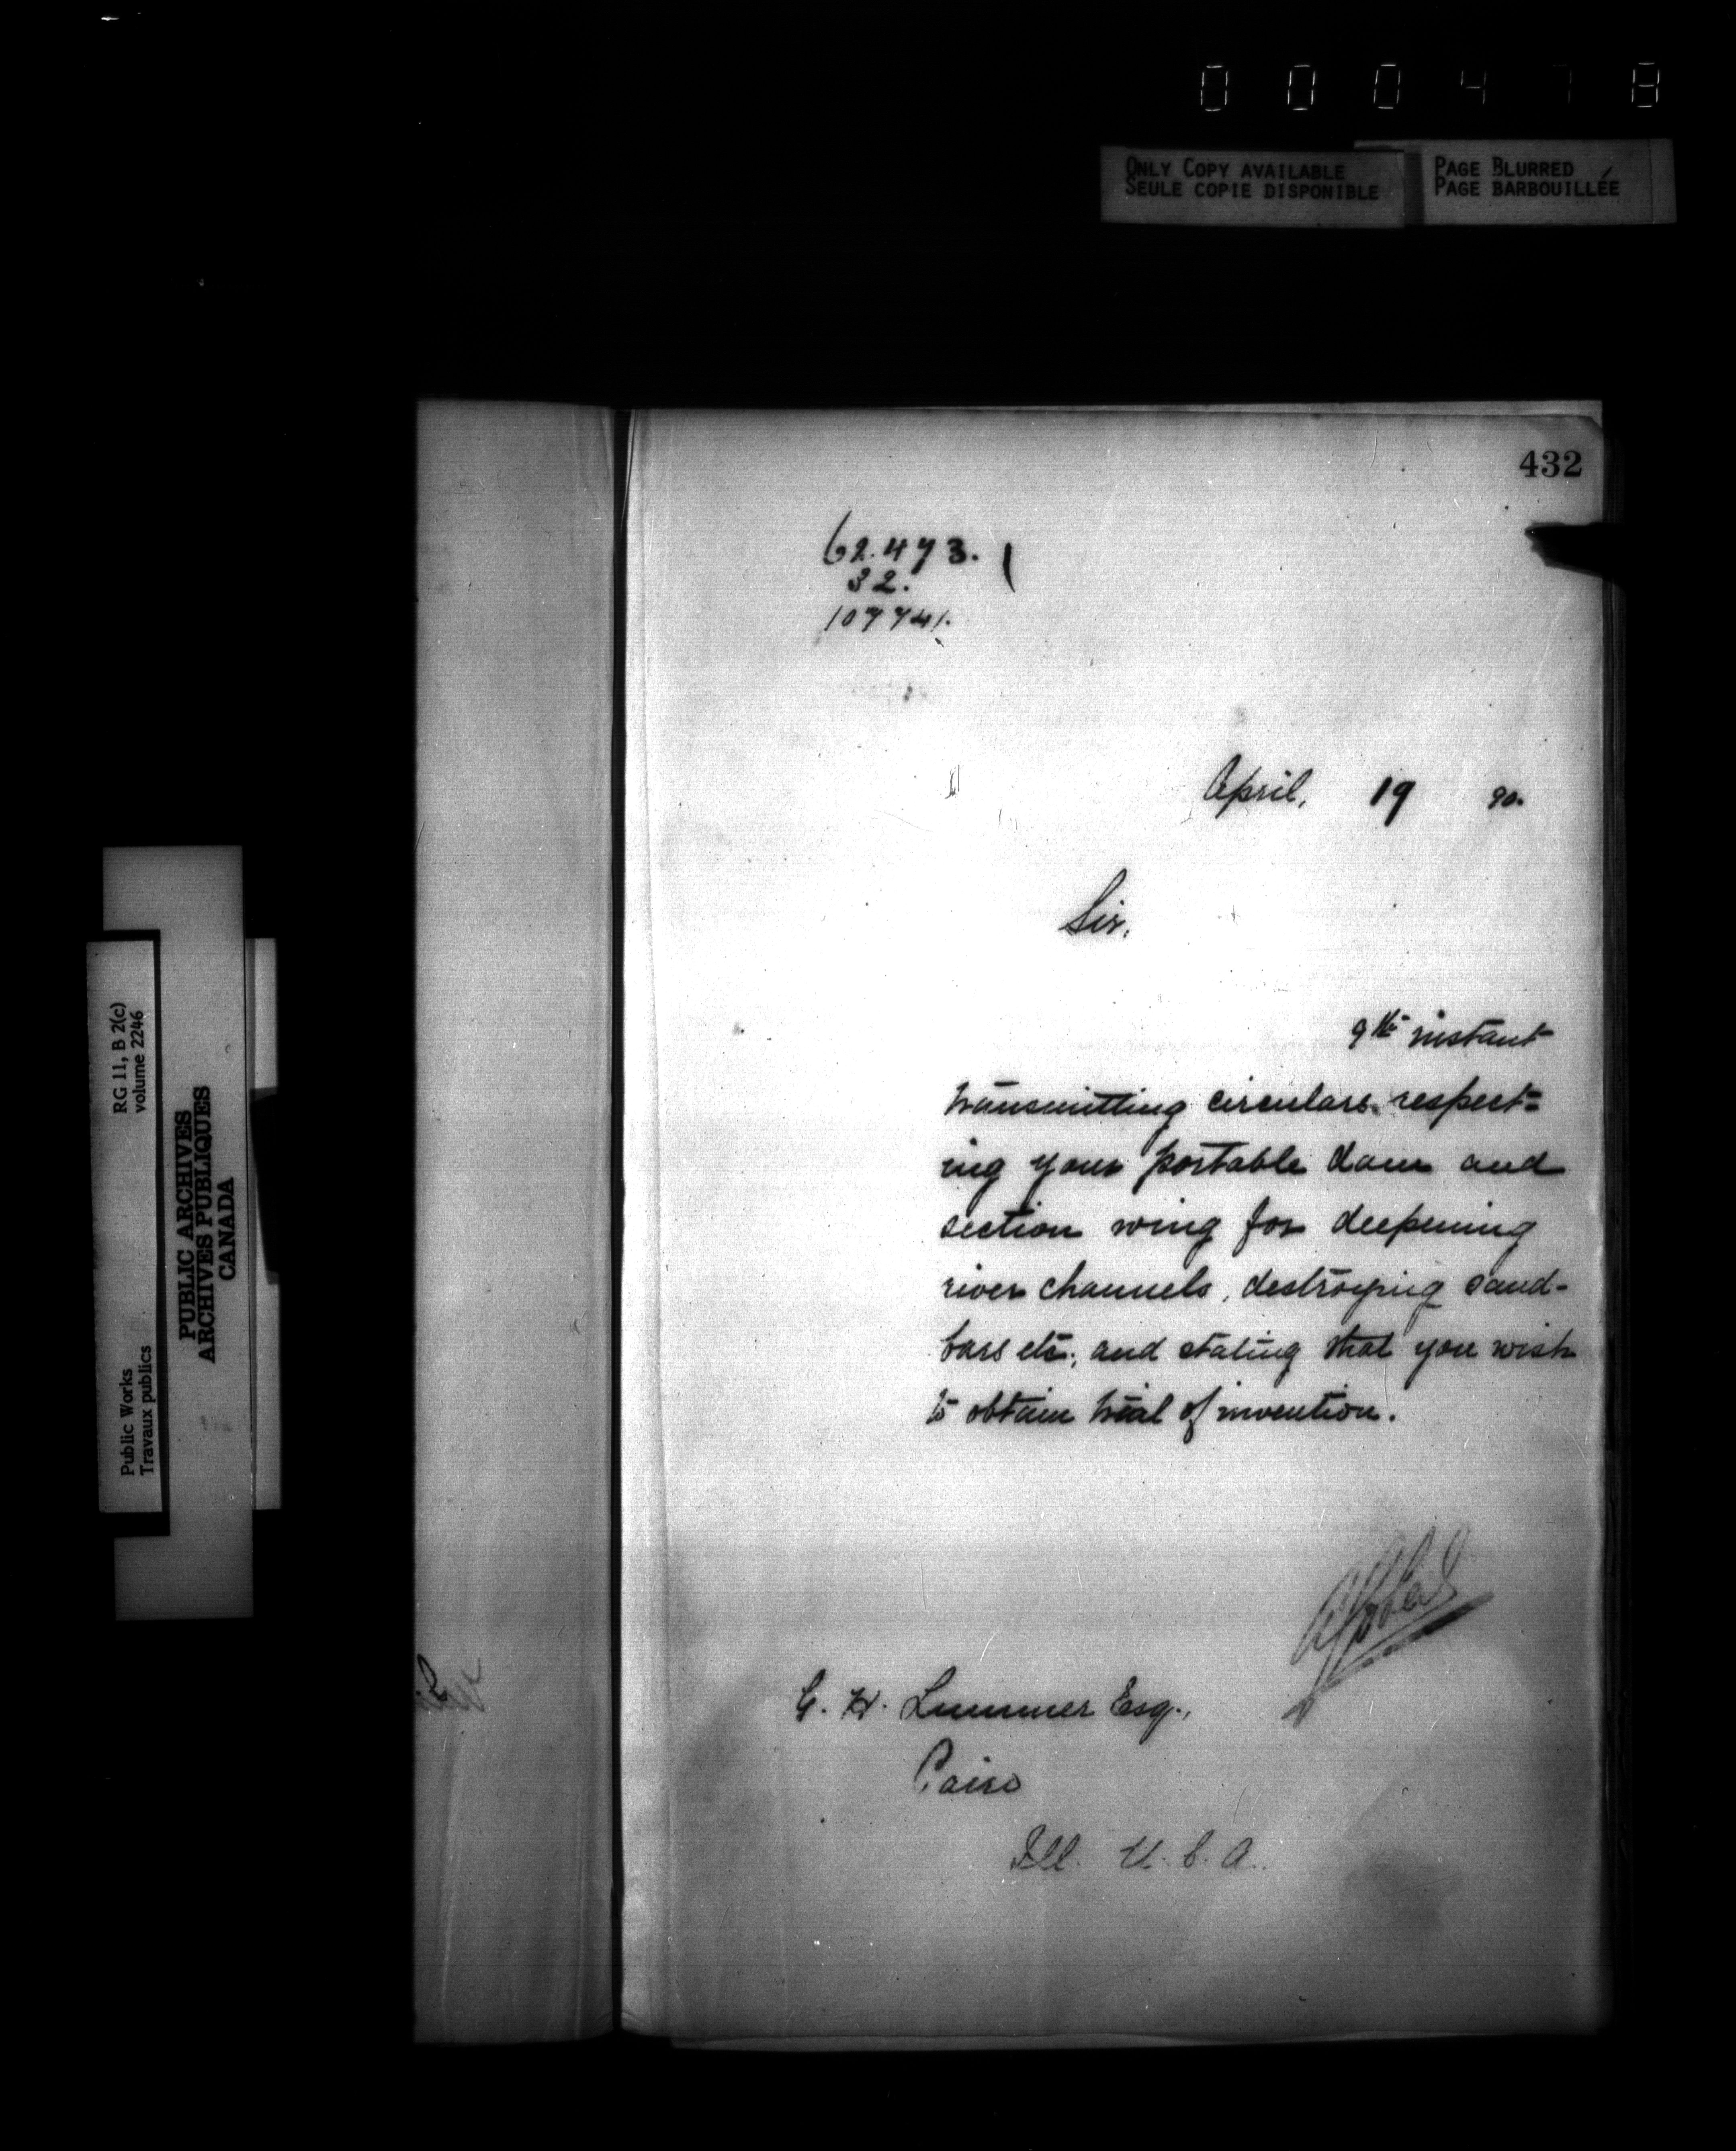 0 0 0 4 7 8
ONLY COPY AVAILABLE
SEULE COPIE DISPONIBLE
PAGE BLURRED
PAGE BARBOUILLÉE
432
62.473.
32.
107741.
April, 19 90.
Sir,
9th instant
transmitting circulars respect=
ing your portable dam and
section wing for deepening
river channels, destroying sand-
bars etc., and stating that you wish
to obtain trial of invention.
G. H. Lummer Esq.,
Cairo
Ill. U.S.A.
RG 11, B 2(c)
volume 2246
Public Works
Travaux publics
PUBLIC ARCHIVES
ARCHIVES PUBLIQUES
CANADA